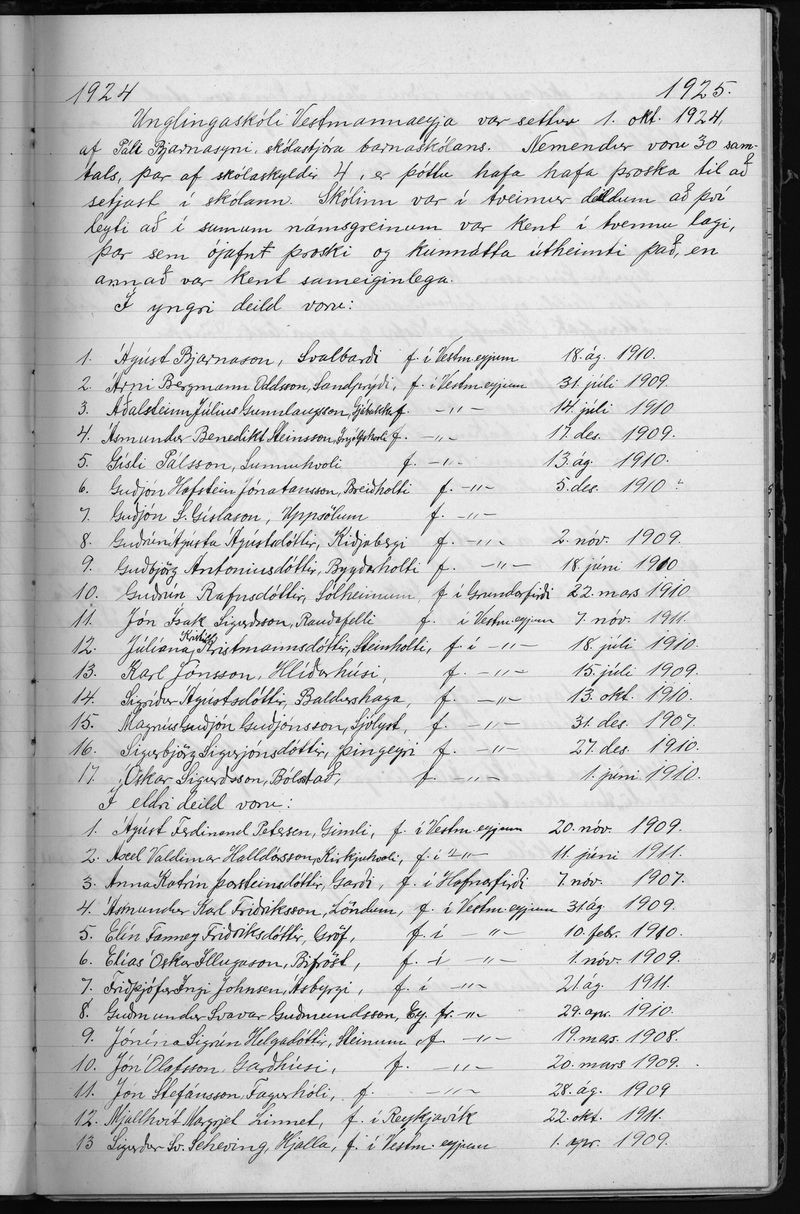 1924 1925.
Unglingaskóli Vestmannaeyja var settur 1. okt. 1924,
af Páli Bjarnasyni, skólastjóra barnaskólans. Nemendur voru 30 sam-
tals, þar af skólaskyldir 4, er þóttu hafa hafa þroska til að
setjast í skólann. Skólinn var í tveimur deildum að því
leyti að í sumum námsgreinum var kent í tvennu lagi,
þar sem ójafnt þroski og kunnátta útheimti það, en
annað var kent sameiginlega.
Í yngri deild voru:
1. Ágúst Bjarnason, Svalbarði f. í Vestm.eyjum 18. ág. 1910.
2. Árni Bergmann Oddsson, Sandprýði, f. í Vestm.eyjum 31. júlí 1909.
3. Aðalsteinn Júlíus Gunnlaugsson, f. -"- 14. júlí 1910
4. Ásmundur Benedikt Steinsson, Ingólfshvoli f. -"- 17. des. 1909.
5. Gísli Pálsson, Sunnuhvoli f. -"- 13. ág. 1910.
6. Guðjón Hafstein Jónatansson, Breiðholti f. -"- 5. des. 1910
7. Guðjón S. Gíslason, Uppsölum f. -"-
8. Guðrún Ágústa Ágústsdóttir, Kiðjabergi f. -"- 2. nóv. 1909.
9. Guðbjörg Antoníusdóttir, Byggðarholti f. -"- 18. júní 1910
10. Guðrún Rafnsdóttir, Sólheimum, f. í Grundarfirði 22. mars 1910.
11. Jón Ísak Sigurðsson, Rauðafelli f. í Vestm.eyjum 7. nóv. 1911.
12. Júlíana Kristín Kristmannsdóttir, Steinholti, f. í -"- 18. júlí 1910.
13. Karl Jónsson, Hlíðarhúsi, f. -"- 15. júlí 1909.
14. Sigríður Ágústsdóttir, Baldurshaga, f. -"- 13. okt. 1910.
15. Magnús Guðjón Guðjónsson, Sjólyst, f. -"- 31. des. 1907.
16. Sigurbjörg Sigurjónsdóttir, Þingeyri f. -"- 27. des. 1910.
17. Óskar Sigurðsson, Bólstað, f. -"- 1. júní 1910.
Í eldri deild voru:
1. Ágúst Ferdinand Petersen, Gimli, f. í Vestm.eyjum 20. nóv. 1909.
2. Axel Valdimar Halldórsson, Kirkjuhvoli, f. í -"- 11. júní 1911.
3. Anna Katrín Þorsteinsdóttir, Garði, f. í Hafnarfirði 7. nóv. 1907.
4. Ásmundur Karl Friðriksson, Löndum, f. í Vestm.eyjum 31. ág. 1909.
5. Elín Fanney Friðriksdóttir, Gröf, f. í -"- 10. febr. 1910.
6. Elías Óskar Illugason, Bifröst, f. í -"- 1. nóv. 1909.
7. Friðþjófur Ingi Johnsen, Ásbyrgi, f. í -"- 21. ág. 1911.
8. Guðmundur Svavar Guðmundsson, f. -"- 29. apr. 1910.
9. Jónína Sigrún Helgadóttir, Steinum, f. -"- 19. mas. 1908.
10. Jón Ólafsson Garðhúsi, f. -"- 20. mars 1909.
11. Jón Stefánsson, Fagurhóli, f. -"- 28. ág. 1909
12. Mjallhvít Margrjet Linnet, f. í Reykjavík 22. okt. 1911.
13 Sigurður Sv. Scheving, Hjalla, f. í Vestm.eyjum 1. apr. 1909.